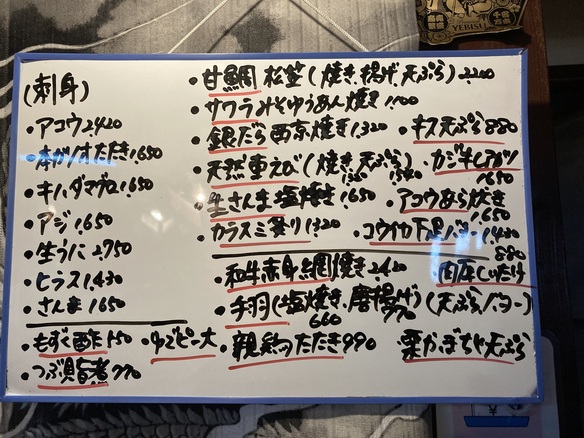 (刺身)
・アコウ2,420
・本ガツオたたき1,650
・キハダマグロ1,650
・アジ1,650
・生うに2,750
・ヒラス1,430
・さんま1650
・もずく酢550
・ゆでピー大
・つぶ貝旨煮770
・甘鯛 松笠(焼き、揚げ、天ぷら)2,200
・サワラみそゆうあん焼き1,100
・銀だら西京焼き1,320
・キス天ぷら880
・天然車えび(焼き、天ぷら)
・生さんま塩焼き1,650
・アコウあら炊き
1,650
・カラスミ炙り1,320
・コウイカ下足バター1,430
・和牛赤身網焼き2,420
・肉厚しいたけ
880
(天ぷら、バター)
・手羽(塩焼き、唐揚げ)
660
770
・親鶏たたき990
栗かぼちゃ天ぷら
YEBISU